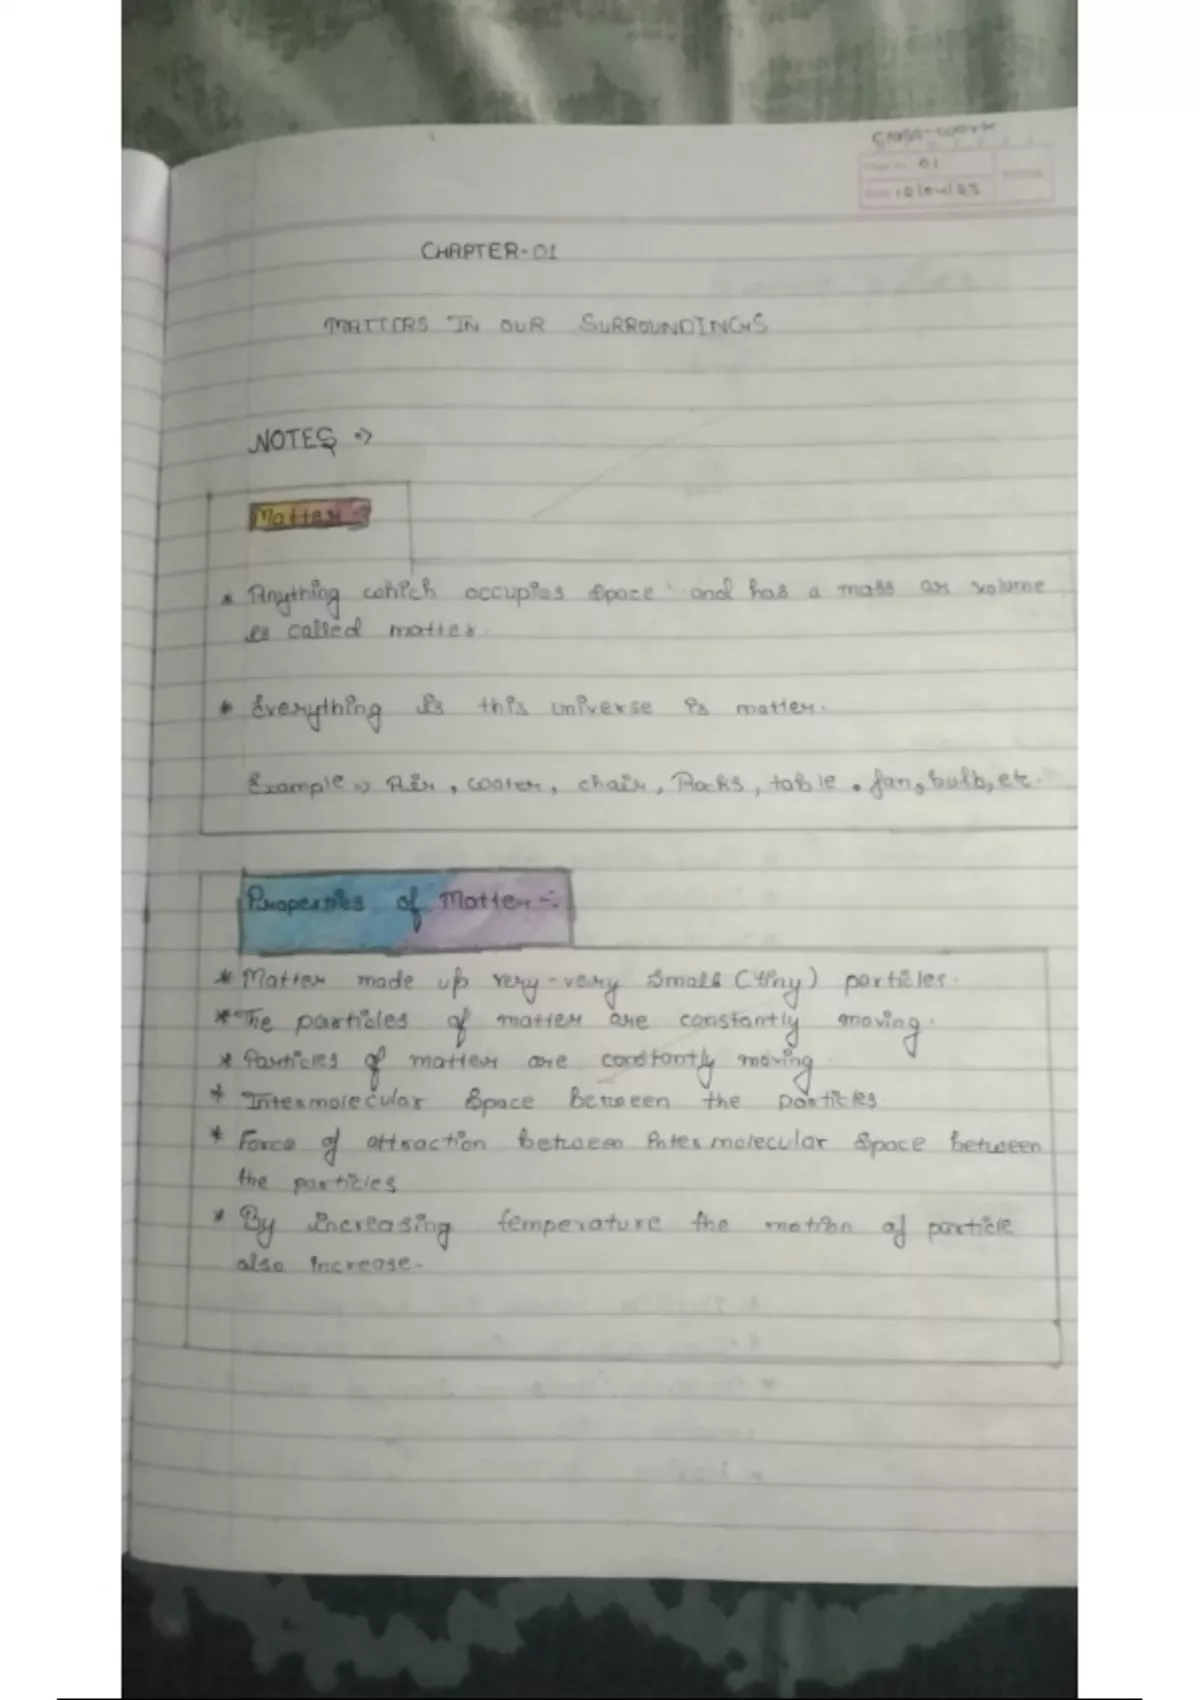 Class-work
01
CHAPTER-01
MATTERS IN OUR SURROUNDINGS
NOTES ⇒
Matter :-
* Anything which occupies space and has a mass or volume
is called matter.
* Everything is this universe is matter.
Example ⇒ Air, cooler, chair, Rocks, table, fan, bulb, etc.
Properties of Matter :-
* Matter made up very-very small (tiny) particles.
* The particles of matter are constantly moving.
* Particles of matter are constantly moving
* Intermolecular space between the particles.
* Force of attraction between intermolecular space between
the particles
* By increasing temperature the motion of particle
also increase.